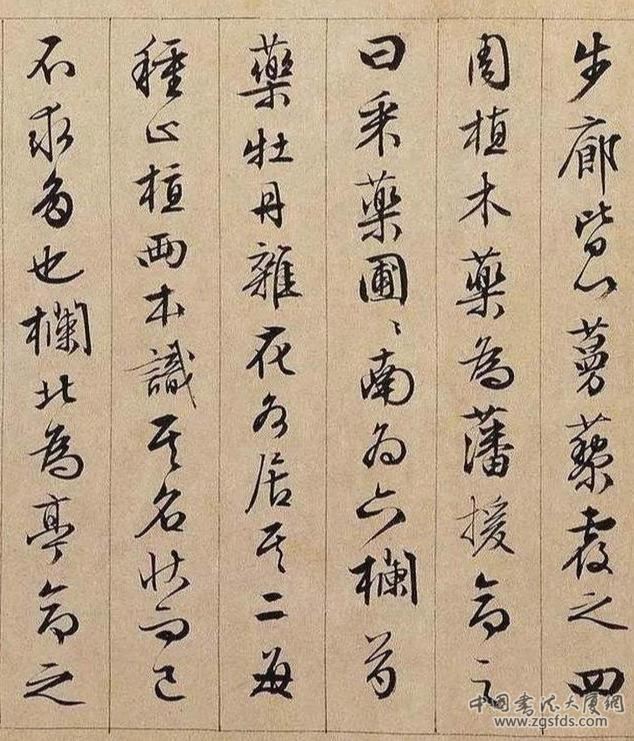 步廊皆以蔓藥覆之四
周植木藥為藩援命之
曰采藥圃〻南為六欄芍
藥牡丹雜花各居其二每
種止植兩本識其名狀而已
不求多也欄北為亭命之
中國書法大廈網
www.zgsfds.com